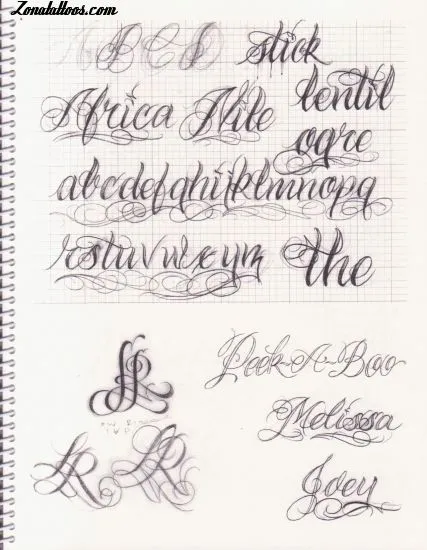 Zonatattoos.com
A B C D stick
Africa Nile lentil
ogre
abcdefghijklmnopq
rstuvwxyz the
LR
Peek-A-Boo
Melissa
LR LR
Joey